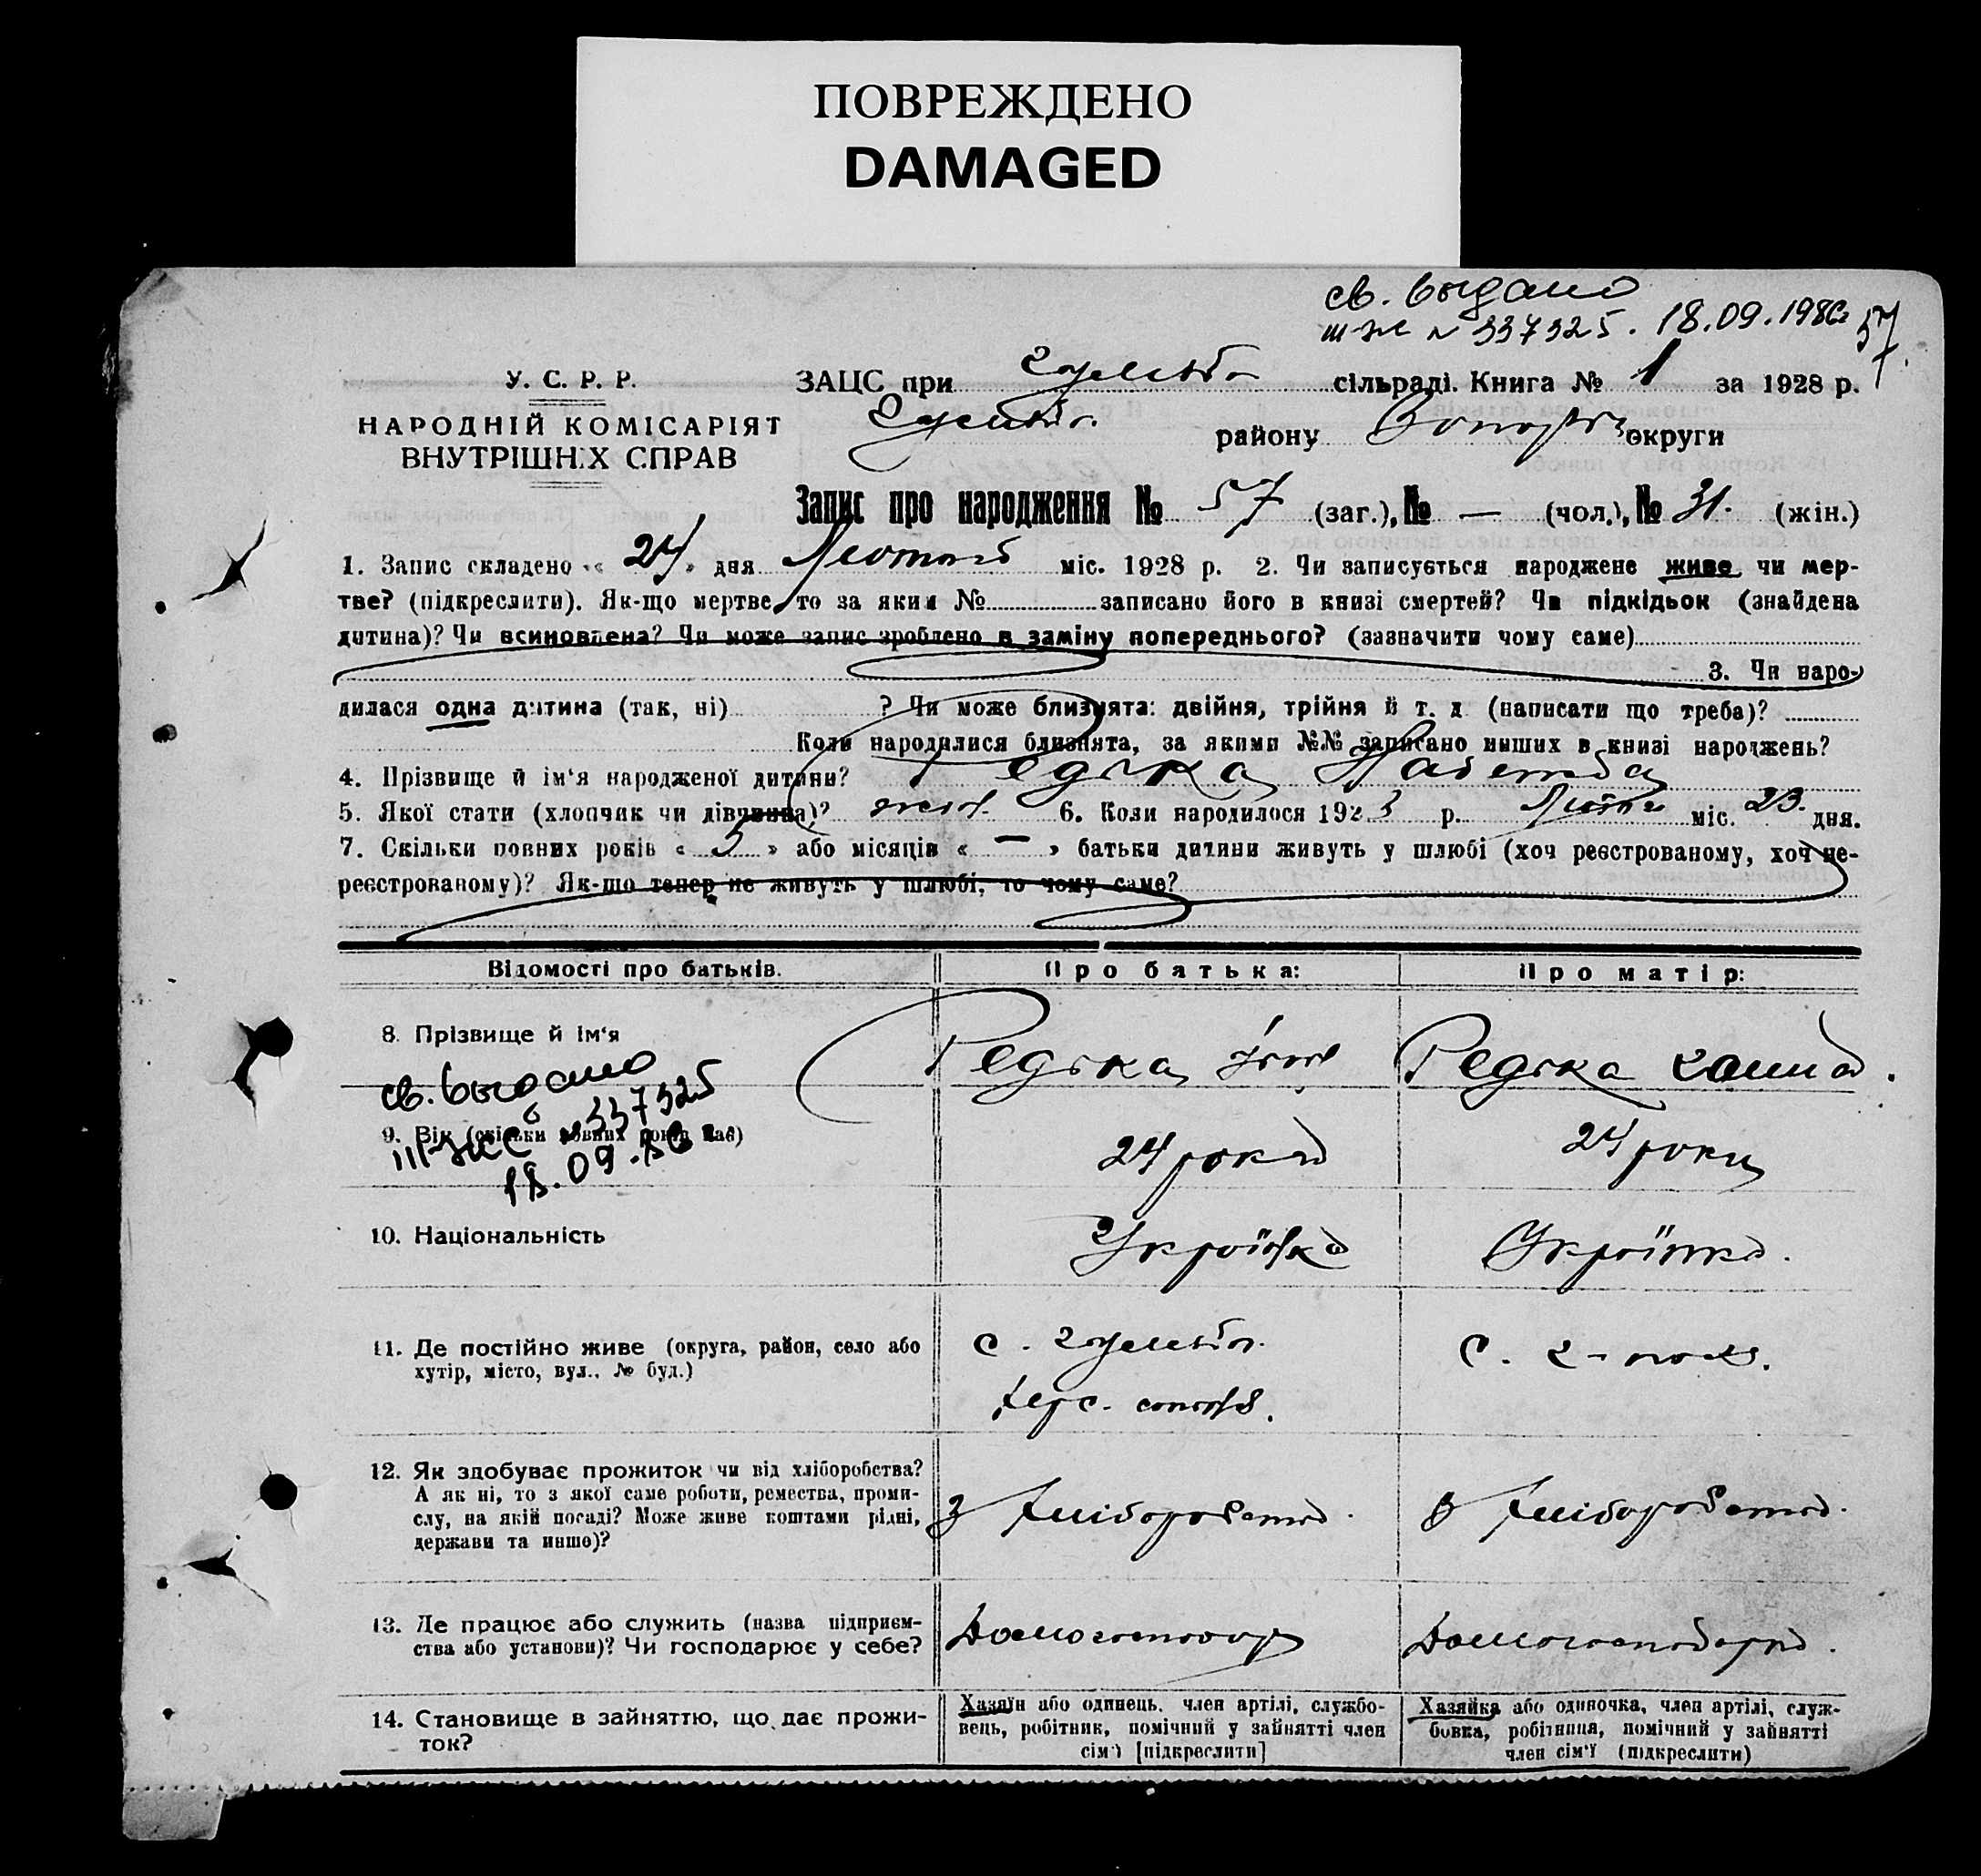 ПОВРЕЖДЕНО
DAMAGED
св. выдано
№ 337325. 18.09.1986
57
У. С. Р. Р.
НАРОДНІЙ КОМІСАРІЯТ
ВНУТРІШНІХ СПРАВ
ЗАЦС при сільраді. Книга № 1 за 1928 р.
району округи
Запис про народження № 57 (заг.), № — (чол.), № 31. (жін.)
1. Запис складено « 24 » дня Лютого міс. 1928 р. 2. Чи записується народжене живе чи мер-
тве? (підкреслити). Як-що мертве, то за яким № записано його в книзі смертей? Чи підкідьок (знайдена
дитина)? Чи всиновлена? Чи може запис зроблено в заміну попереднього? (зазначити чому саме)
3. Чи наро-
дилася одна дитина (так, ні) ? Чи може близнята: двійня, трійня й т. д. (написати що треба)?
Коли народилися близнята, за якими №№ записано инших в книзі народжень?
4. Прізвище й ім'я народженої дитини? Редька
5. Якої стати (хлопчик чи дівчинка)? жін. 6. Коли народилося 192 р. міс. 23 дня.
7. Скільки повних років « 5 » або місяців « — » батьки дитини живуть у шлюбі (хоч реєстрованому, хоч не-
реєстрованому)? Як-що тепер не живуть у шлюбі, то чому саме?
Відомості про батьків. Про батька: Про матір:
8. Прізвище й ім'я Редька Редька
св. выдано
№ 337325
18.09.86
9. Вік (скільки повних років має) 24 роки 24 роки
10. Національність Українка
11. Де постійно живе (округа, район, село або
хутір, місто, вул., № буд.)
12. Як здобуває прожиток чи від хліборобства?
А як ні, то з якої саме роботи, ремества, проми-
слу, на якій посаді? Може живе коштами рідні,
держави та инше)?
З хліборобства З хліборобства
13. Де працює або служить (назва підприєм-
ства або установи)? Чи господарює у себе?
Домогосподар Домогосподарка
14. Становище в зайняттю, що дає прожи-
ток?
Хазяїн або одинець, член артілі, службо-
вець, робітник, помічний у зайнятті член
сім'ї [підкреслити]
Хазяйка або одиночка, член артілі, служ-
бовка, робітниця, помічний у зайнятті
член сім'ї (підкреслити)